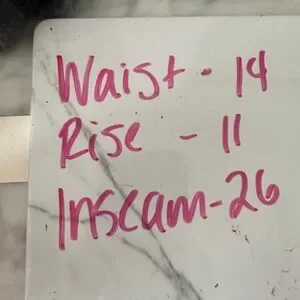 Waist - 14
Rise - 11
Inseam - 26